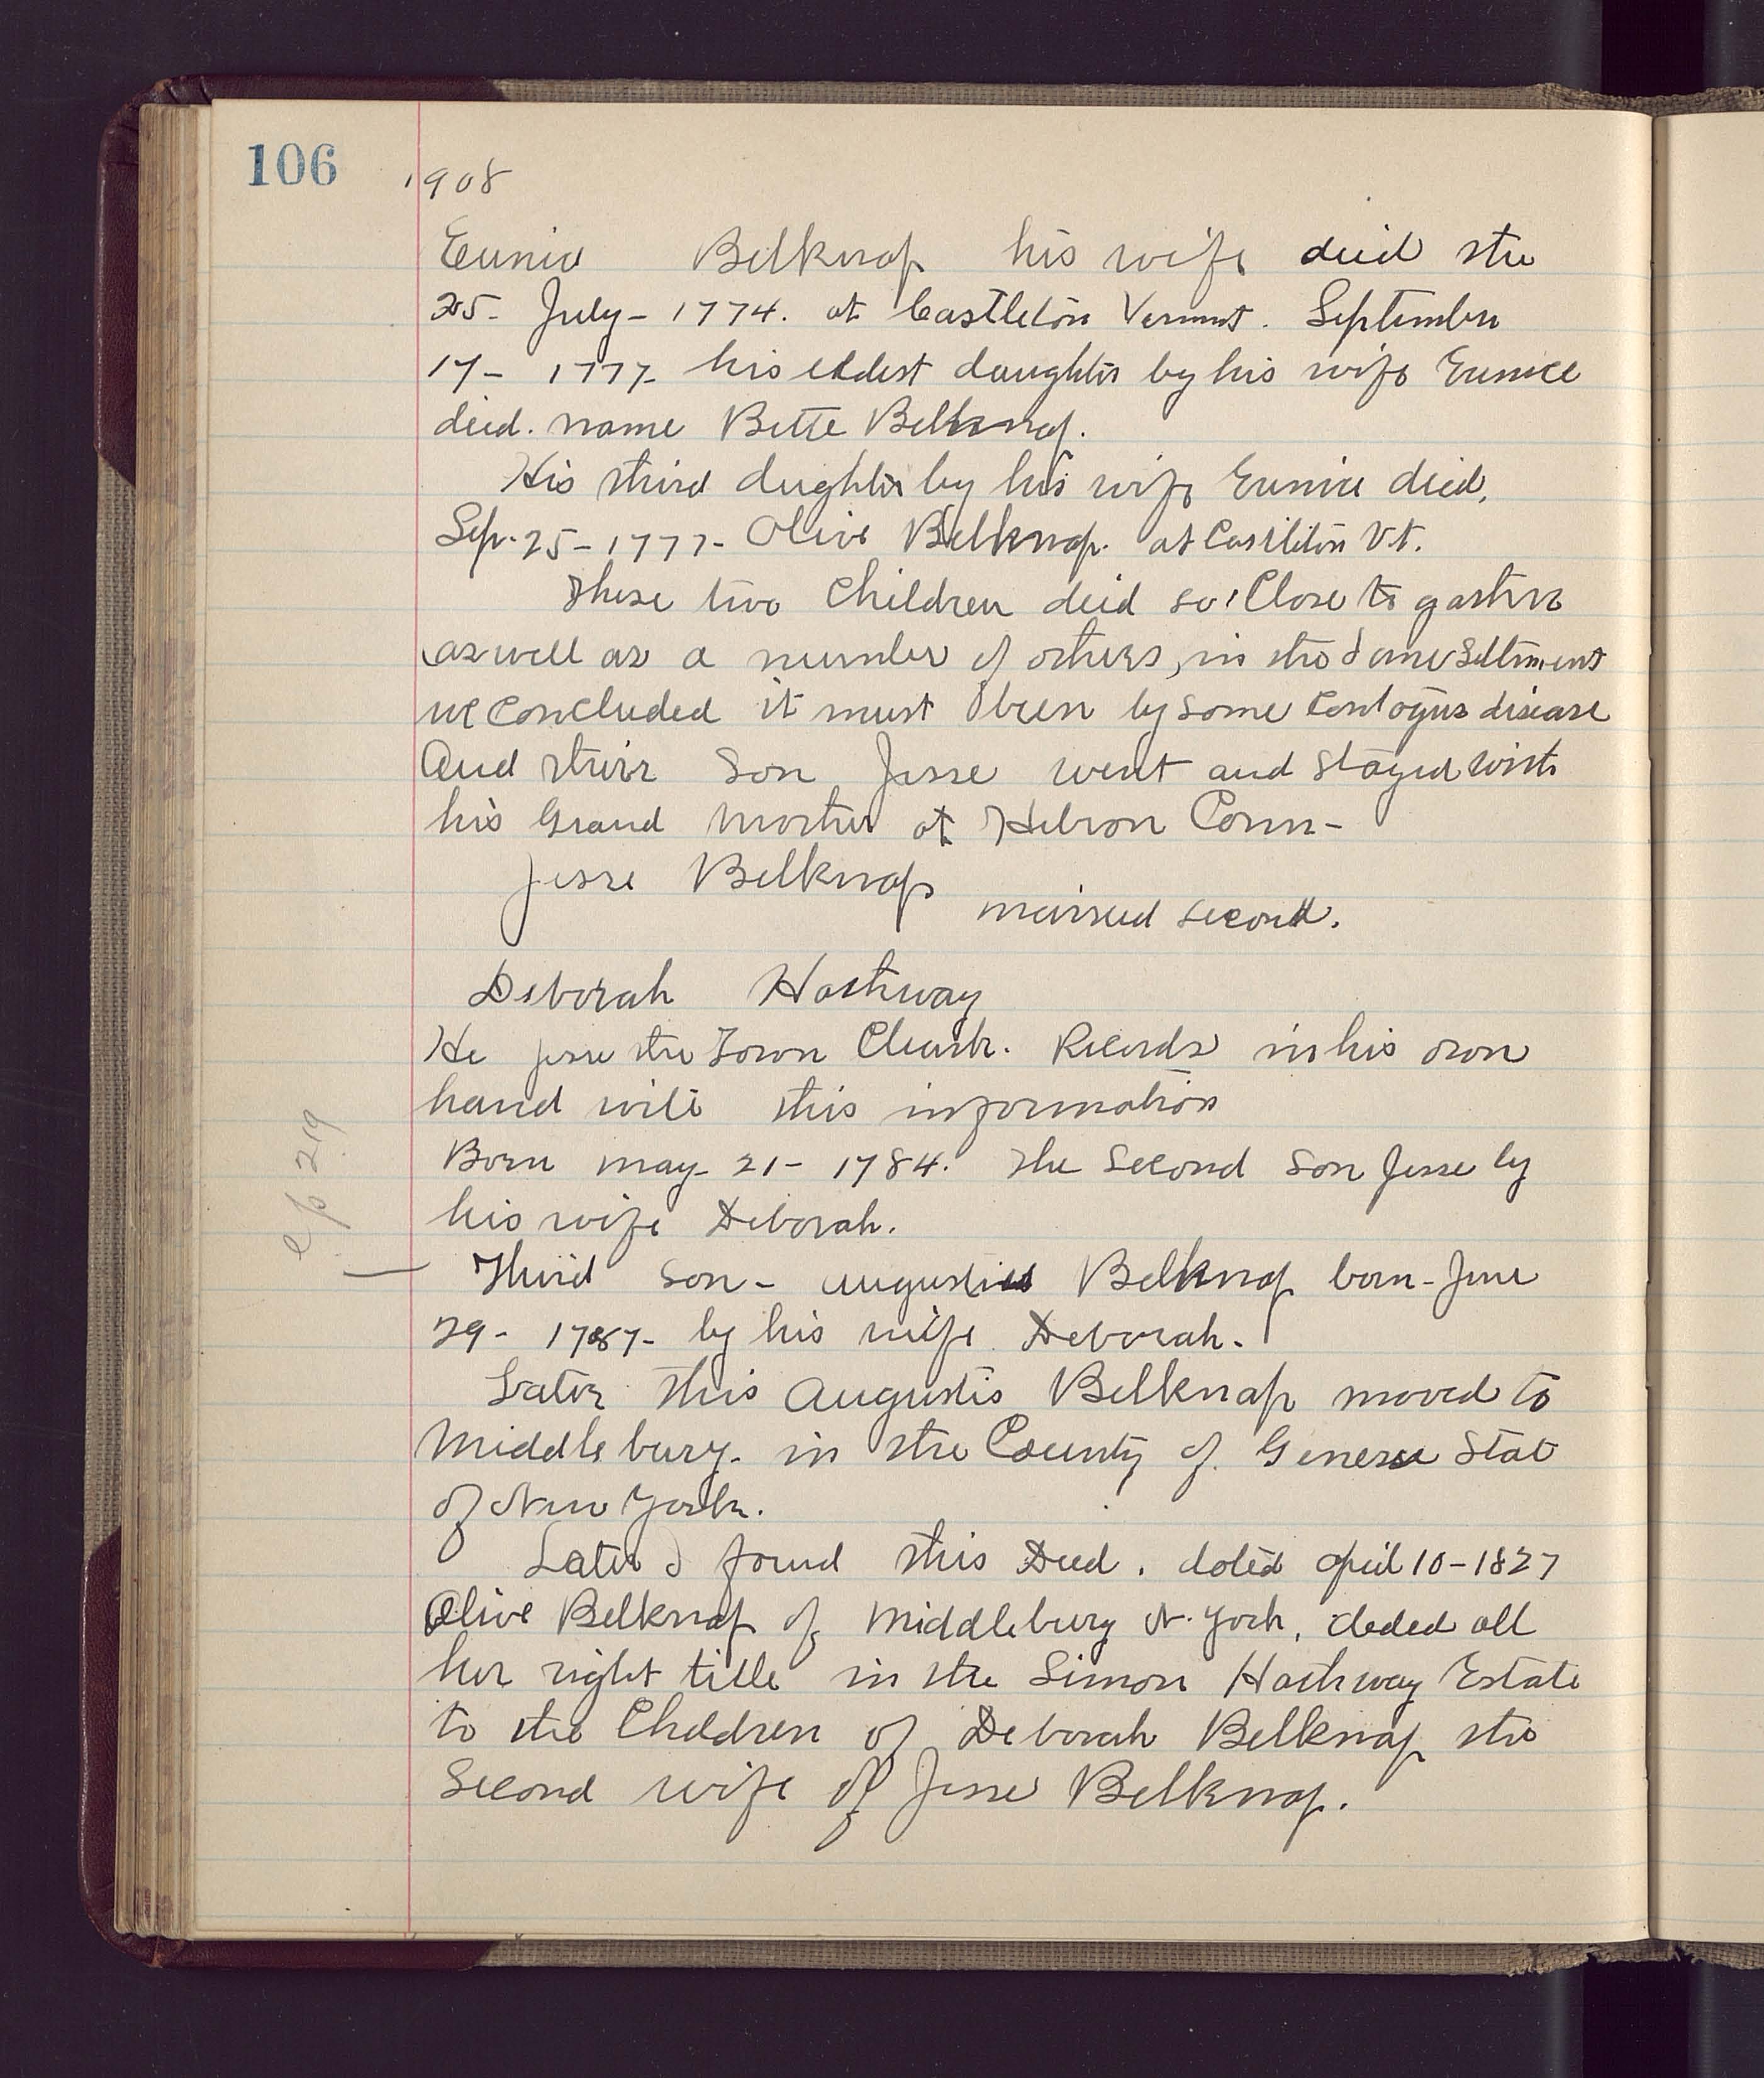 106
1908
Eunice Belknap his wife died the
25- July- 1774. at Castleton Vermont. September
17- 1777- his eldest daughter by his wife Eunice
died. name Bette Belknap.
His third dughter by his wife Eunice died,
Sep. 25-1777- Olive Belknap. at Castleton Vt.
These two Children died so Close to gather
as well as a number of others, in the same Settlment
we Concluded it must been by some Contogus disease
And their Son Jesse went and Stayed with
his Grand Mother at Hebron Conn-
Jesse Belknap
married second.
Deborah Hathway
He Jesse the Town Cleark. Records in his own
hand wite this information
Born may- 21- 1784. The Second Son Jesse by
his wife Deborah.
Third Son- Augustus Belknap born- June
29- 1787- by his wife Deborah.
Later this Augustis Belknap moved to
Middlebury- in the County of Genesee Stat
of New York.
Later I found this Deed. doted April 10-1827
Olive Belknap of Middlebury N. York, deded all
her right title in the Simon Hathway Estate
to the Children of Deborah Belknap the
Second wife of Jesse Belknap.
p 219